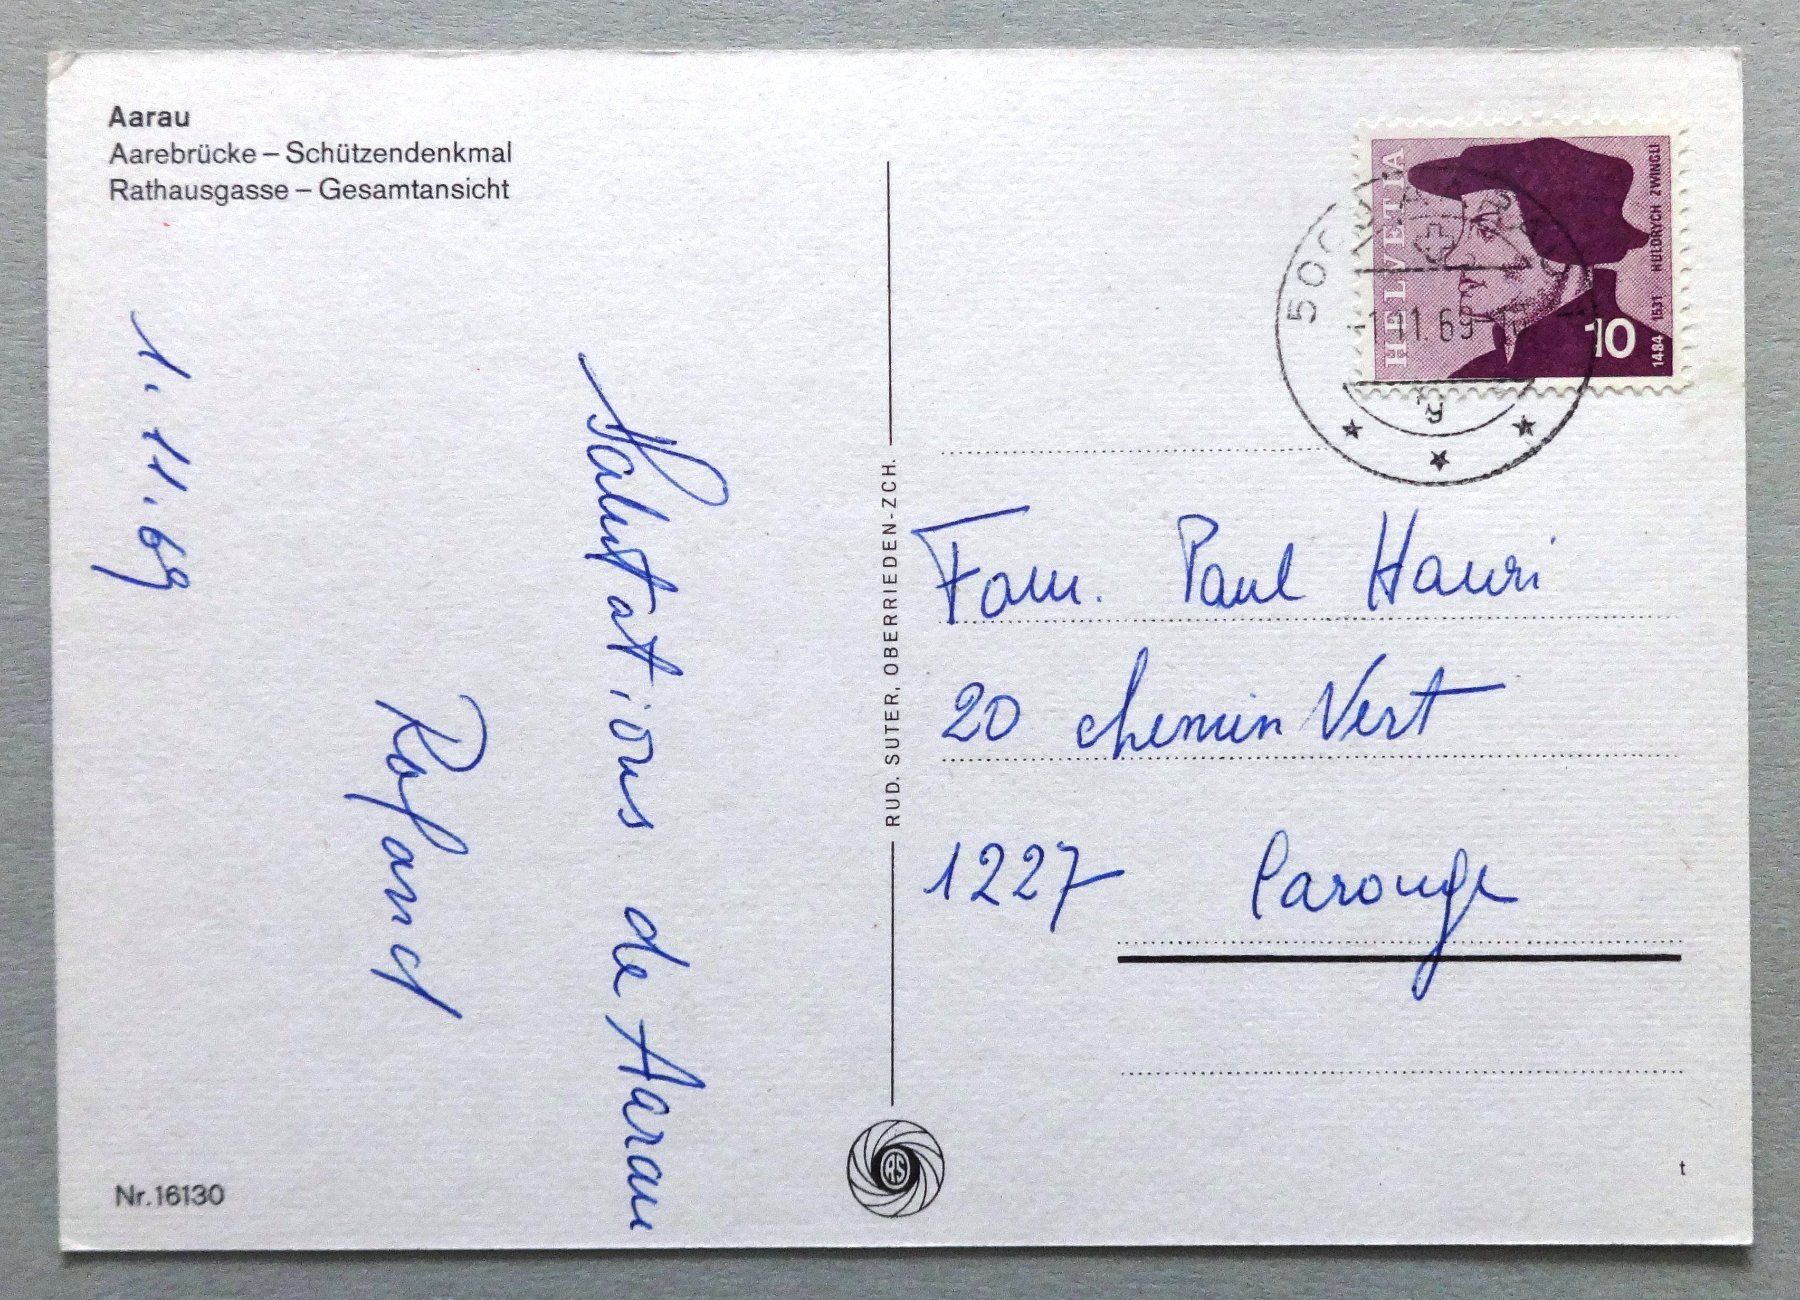 Aarau
Aarebrücke – Schützendenkmal
Rathausgasse – Gesamtansicht
1.11.69
Salutations de Aarau
Roland
Nr. 16130
RUD. SUTER, OBERRIEDEN-ZCH.
RS
HELVETIA
HULDRYCH ZWINGLI
1484 1531
10
500
1.11.69
Fam. Paul Hauri
20 chemin Vert
1227 Carouge
t